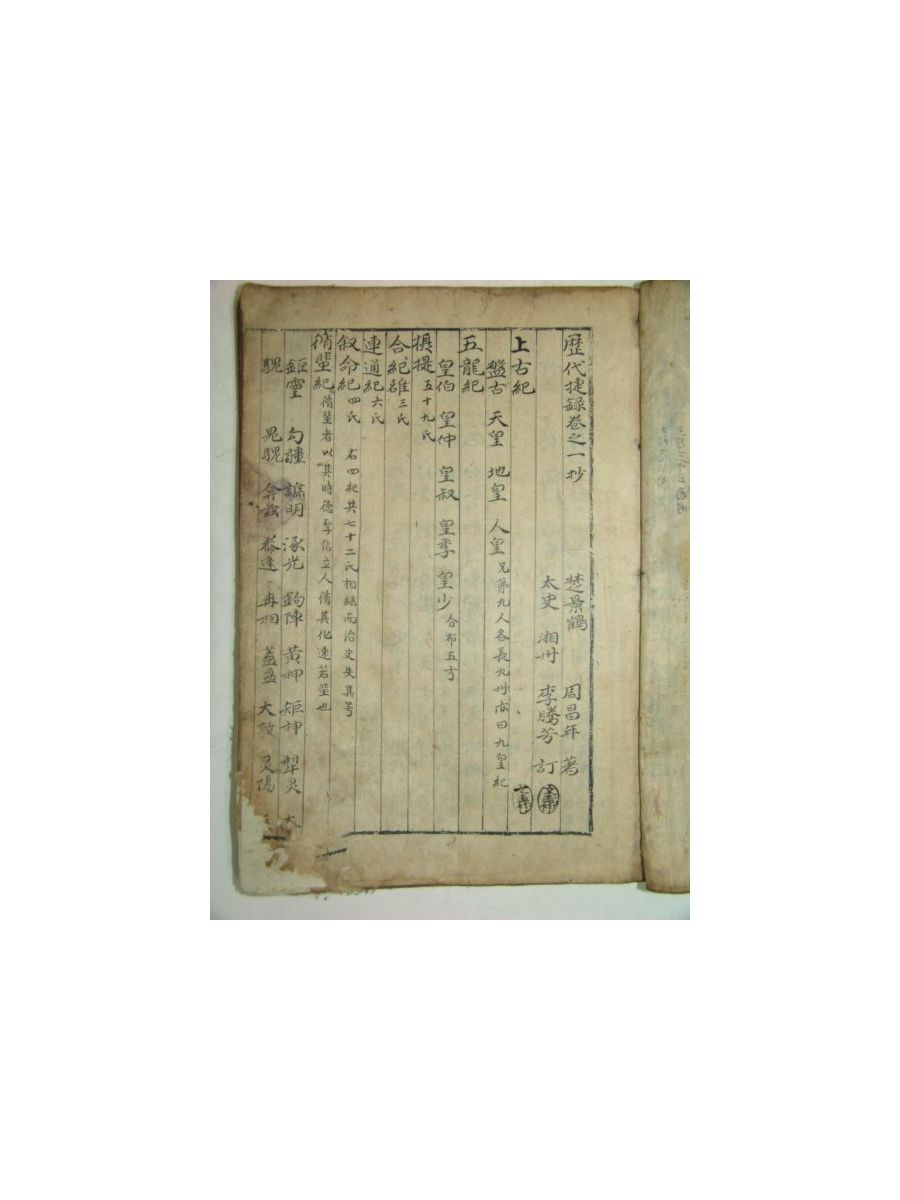 歷代捷錄卷之一抄
楚景鶴 周昌年 著
太史 湘州 李騰芳 訂
上古紀
盤古 天皇 地皇 人皇 兄弟九人各長九州亦曰九皇紀
五龍紀
皇伯 皇仲 皇叔 皇季 皇少 分布五方
攝提 五十九氏
合紀雒 三氏
連通紀 六氏
叙命紀 四氏 右四紀共七十二氏相繼而治史失其号
循蜚紀 循蜚者以其時德季信立人循其化速若蜚也
鉅靈 勾疆 譙明 涿光 鉤陣 黃神 矩神 犁灵 大
騩 鬼騩 弇玆 泰逢 冉相 蓋盈 大敦 灵陽